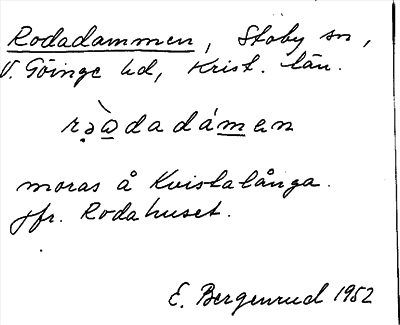 Rodadammen, Stoby sn,
V. Göinge hd, Krist. län.
moras å Kvistalånga.
jfr. Rodahuset.
E. Bergenrud 1952